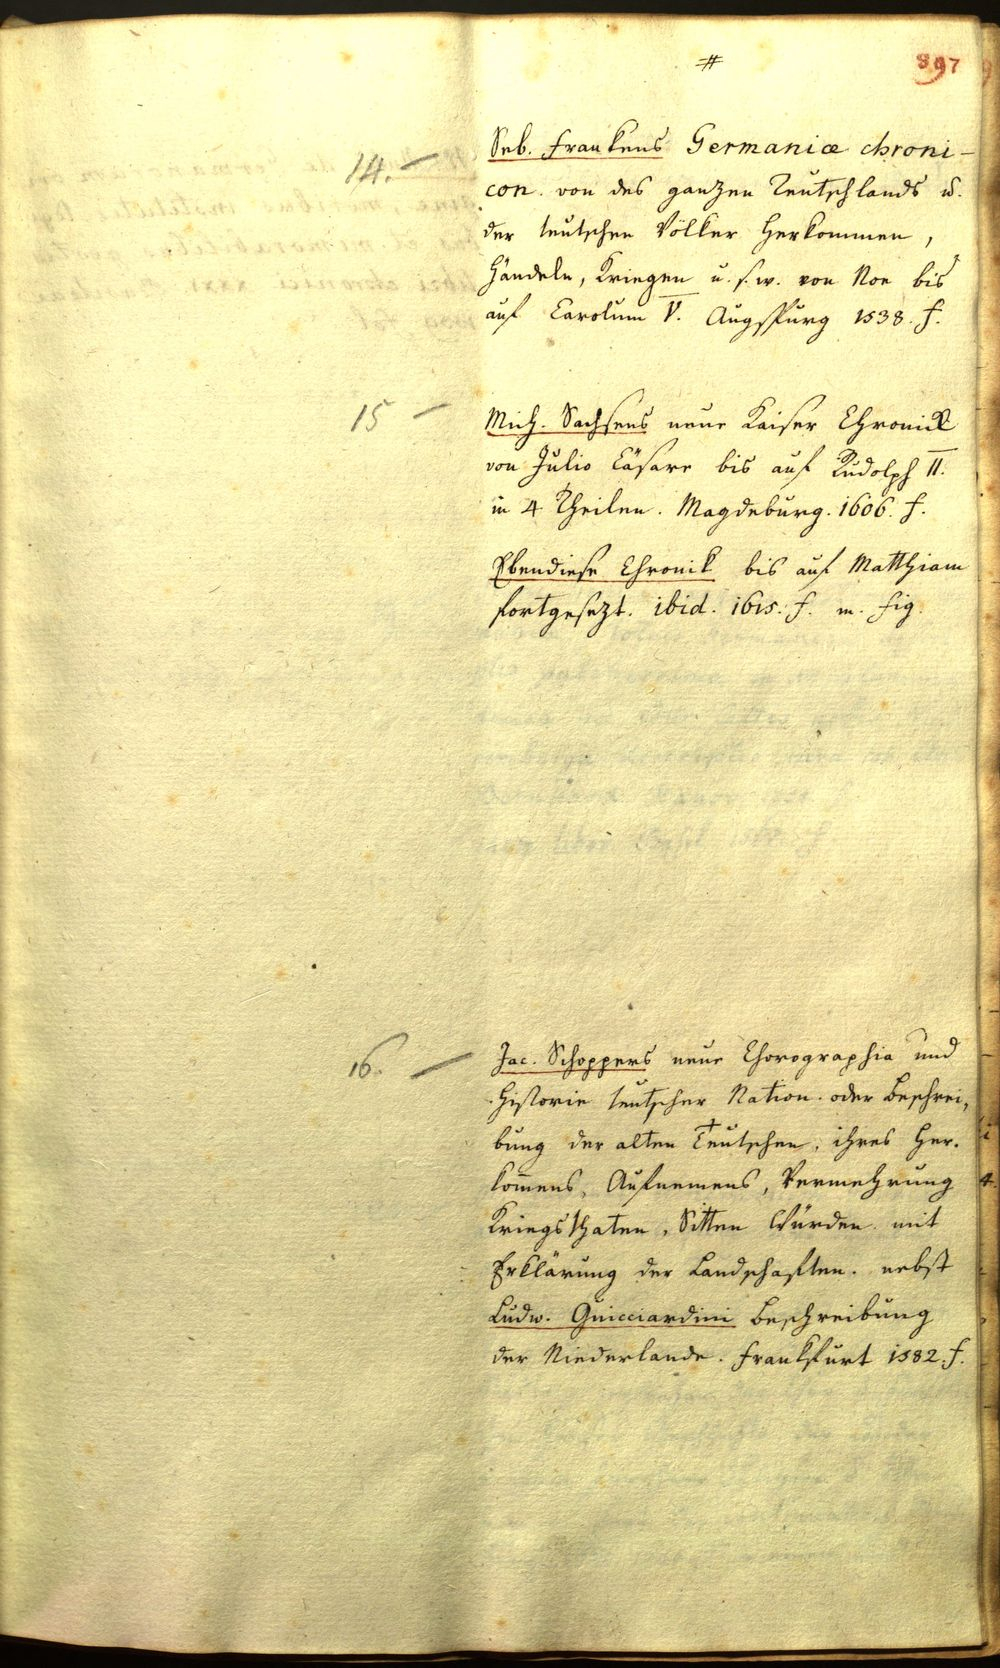 #
397
14. — Seb. Frankens Germaniæ chroni-
con. von des ganzen Teutschlands u.
der teutschen Völker Herkommen,
Händeln, Kriegen u. s. w. von Noe bis
auf Carolum V. Augspurg 1538. f.
15 — Mich. Sachsens neue Kaiser Chronick
von Julio Cäsare bis auf Rudolph II.
in 4 Theilen. Magdeburg. 1606. f.
Ebendiese Chronik bis auf Matthiam
fortgesezt. ibid. 1615. f. m. fig.
16. — Jac. Schoppers neue Chorographia und
Historie teutscher Nation. oder Beschrei-
bung der alten Teutschen, ihres Her-
kom̄ens, Aufnemens, Vermehrung
Kriegsthaten, Sitten Würden. mit
Erklärung der Landschaften. nebst
Ludw. Guicciardini Beschreibung
der Niederlande. Frankfurt 1582. f.